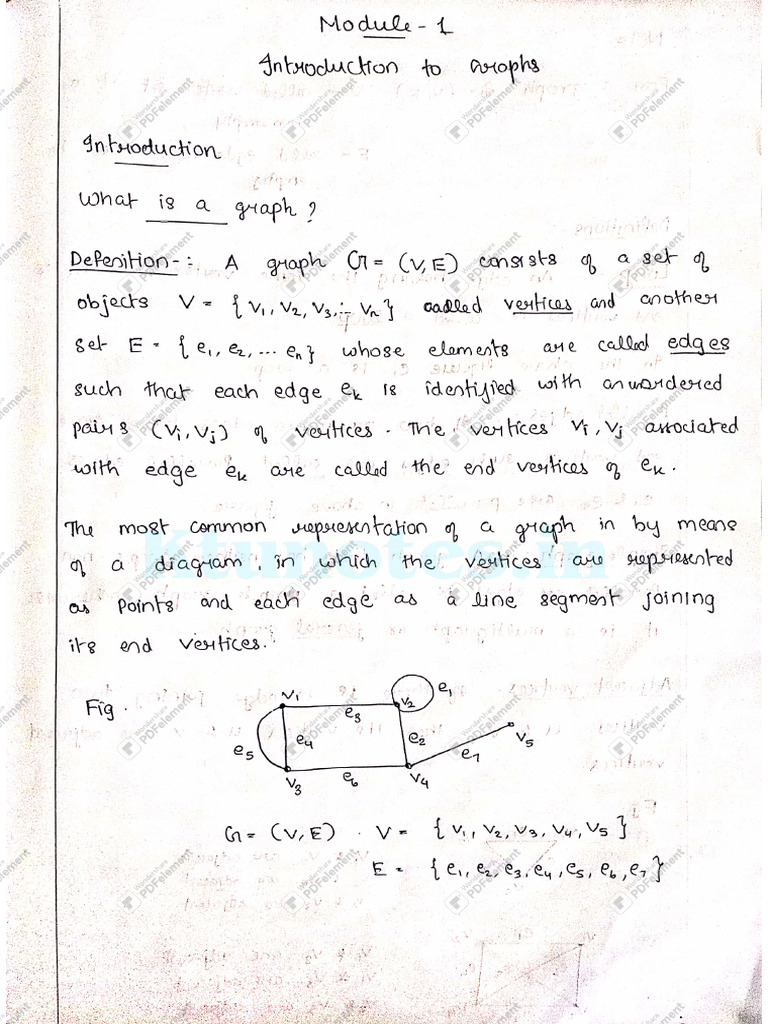 Module - 1
Introduction to Graphs
Introduction
What is a graph?
Defenition-: A graph G = (V, E) consists of a set of
objects V = {v1, v2, v3, ... vn} called vertices and another
set E = {e1, e2, ... en} whose elements are called edges
such that each edge ek is identified with an unordered
pairs (vi, vj) of vertices. The vertices vi, vj associated
with edge ek are called the end vertices of ek.
The most common representation of a graph in by means
of a diagram, in which the vertices are represented
as points and each edge as a line segment joining
its end vertices.
Fig.
v1 e3 v2 e1
e5 e4 e2 e7 v5
v3 e6 v4
G = (V, E). V = {v1, v2, v3, v4, v5}
E = {e1, e2, e3, e4, e5, e6, e7}
ktunotes.in
Wondershare
PDFelement